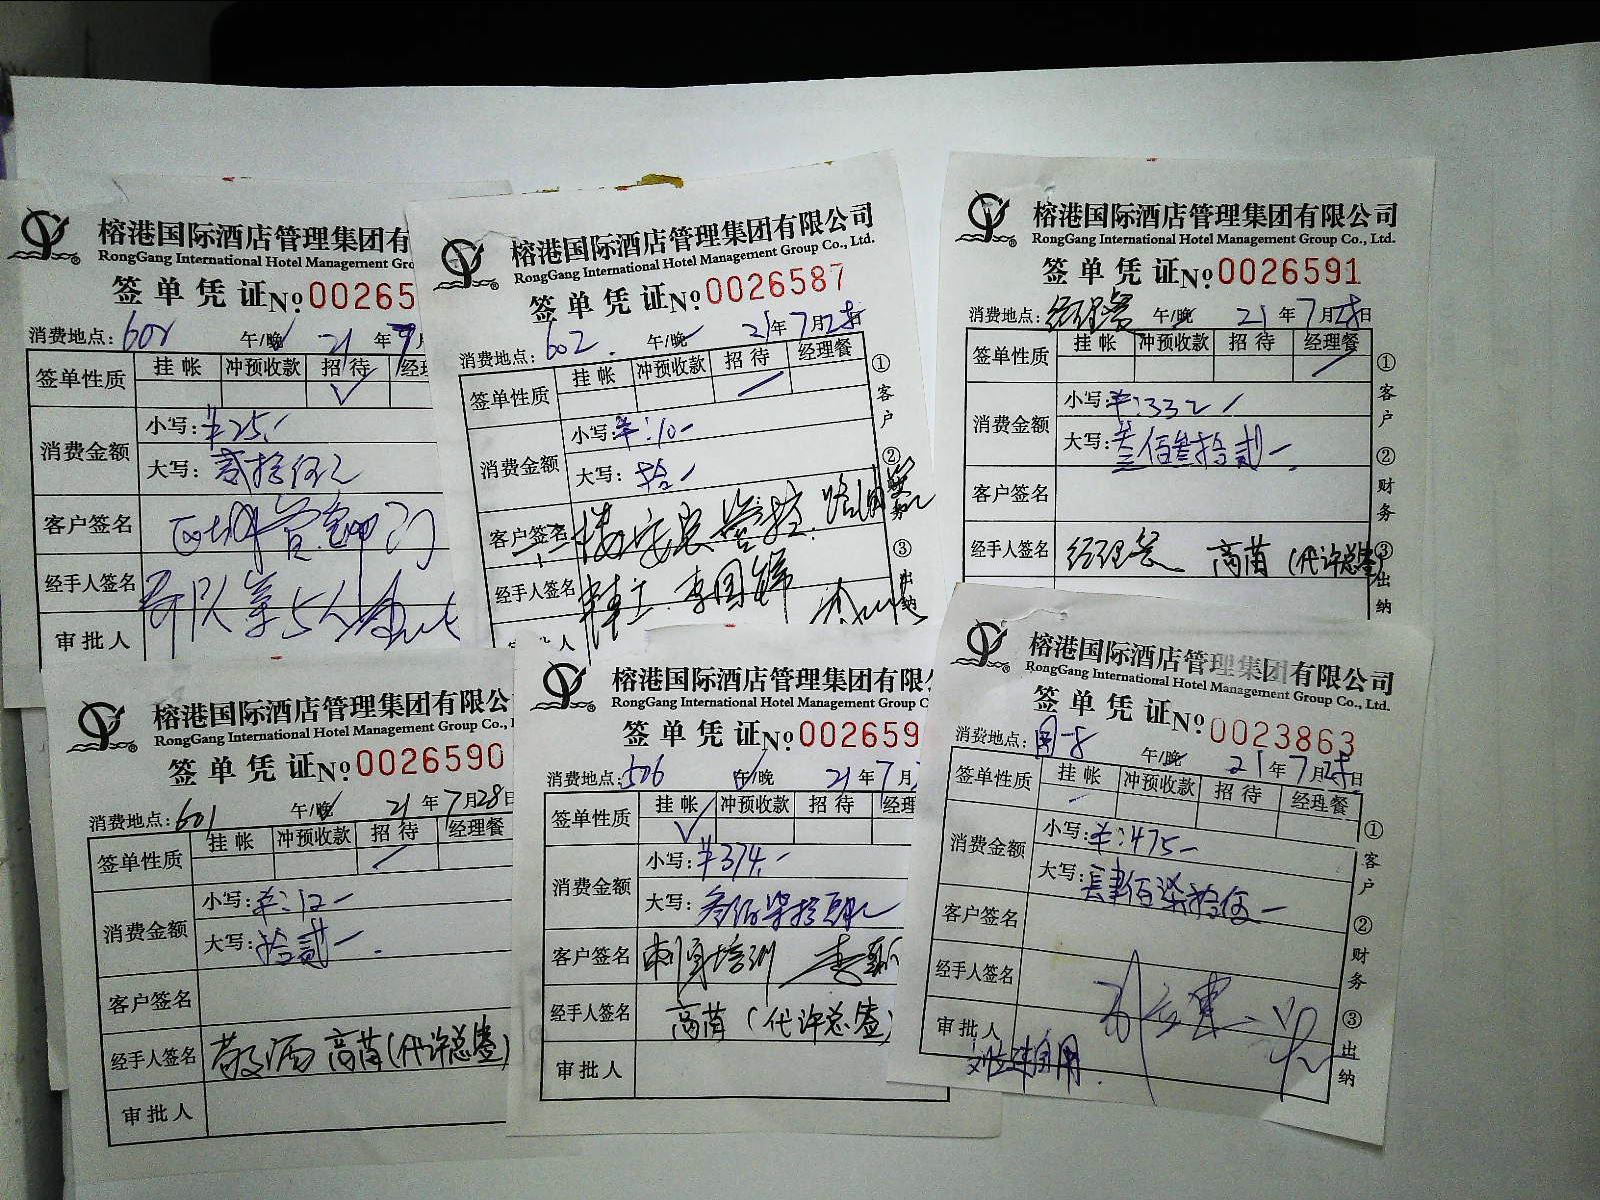 榕港国际酒店管理集团有
RongGang International Hotel Management Gro
签单凭证 No. 00265
消费地点: 602 午/晚 21 年
签单性质 挂帐 冲预收款 招待 经理
消费金额 小写: ¥25.-
大写: 贰拾伍元
客户签名
经手人签名
审批人
榕港国际酒店管理集团有限公司
RongGang International Hotel Management Group Co., Ltd.
签单凭证 No. 0026587
消费地点: 602. 午/晚 21年7月28日
签单性质 挂帐 冲预收款 招待 经理餐
消费金额 小写: ¥:10-
大写: 拾
客户签名
经手人签名
审批人
①客户 ②财务 ③出纳
榕港国际酒店管理集团有限公司
RongGang International Hotel Management Group Co., Ltd.
签单凭证 No. 0026591
消费地点: 经理餐 午/晚 21年7月28日
签单性质 挂帐 冲预收款 招待 经理餐
消费金额 小写: ¥:332
大写: 叁佰叁拾贰-
客户签名
经手人签名 经理餐 高茵(代许总签)
①客户 ②财务 ③出纳
榕港国际酒店管理集团有限公
RongGang International Hotel Management Group Co.,
签单凭证 No. 0026590
消费地点: 601 午/晚 21年7月28日
签单性质 挂帐 冲预收款 招待 经理餐
消费金额 小写: ¥:12-
大写: 拾贰-.
客户签名
经手人签名 敬酒 高茵(代许总签)
审批人
榕港国际酒店管理集团有限
RongGang International Hotel Management Group C
签单凭证 No. 002659
消费地点: 506 午/晚 21年7月
签单性质 挂帐 冲预收款 招待 经理
消费金额 小写: ¥374.-
大写: 叁佰柒拾肆元
客户签名 刺身培训
经手人签名 高茵(代许总签)
审批人
榕港国际酒店管理集团有限公司
RongGang International Hotel Management Group Co., Ltd.
签单凭证 No. 0023863
消费地点: 午/晚 21年7月28日
签单性质 挂帐 冲预收款 招待 经理餐
消费金额 小写: ¥:475-
大写: 肆佰柒拾伍-
客户签名
经手人签名
审批人
①客户 ②财务 ③出纳